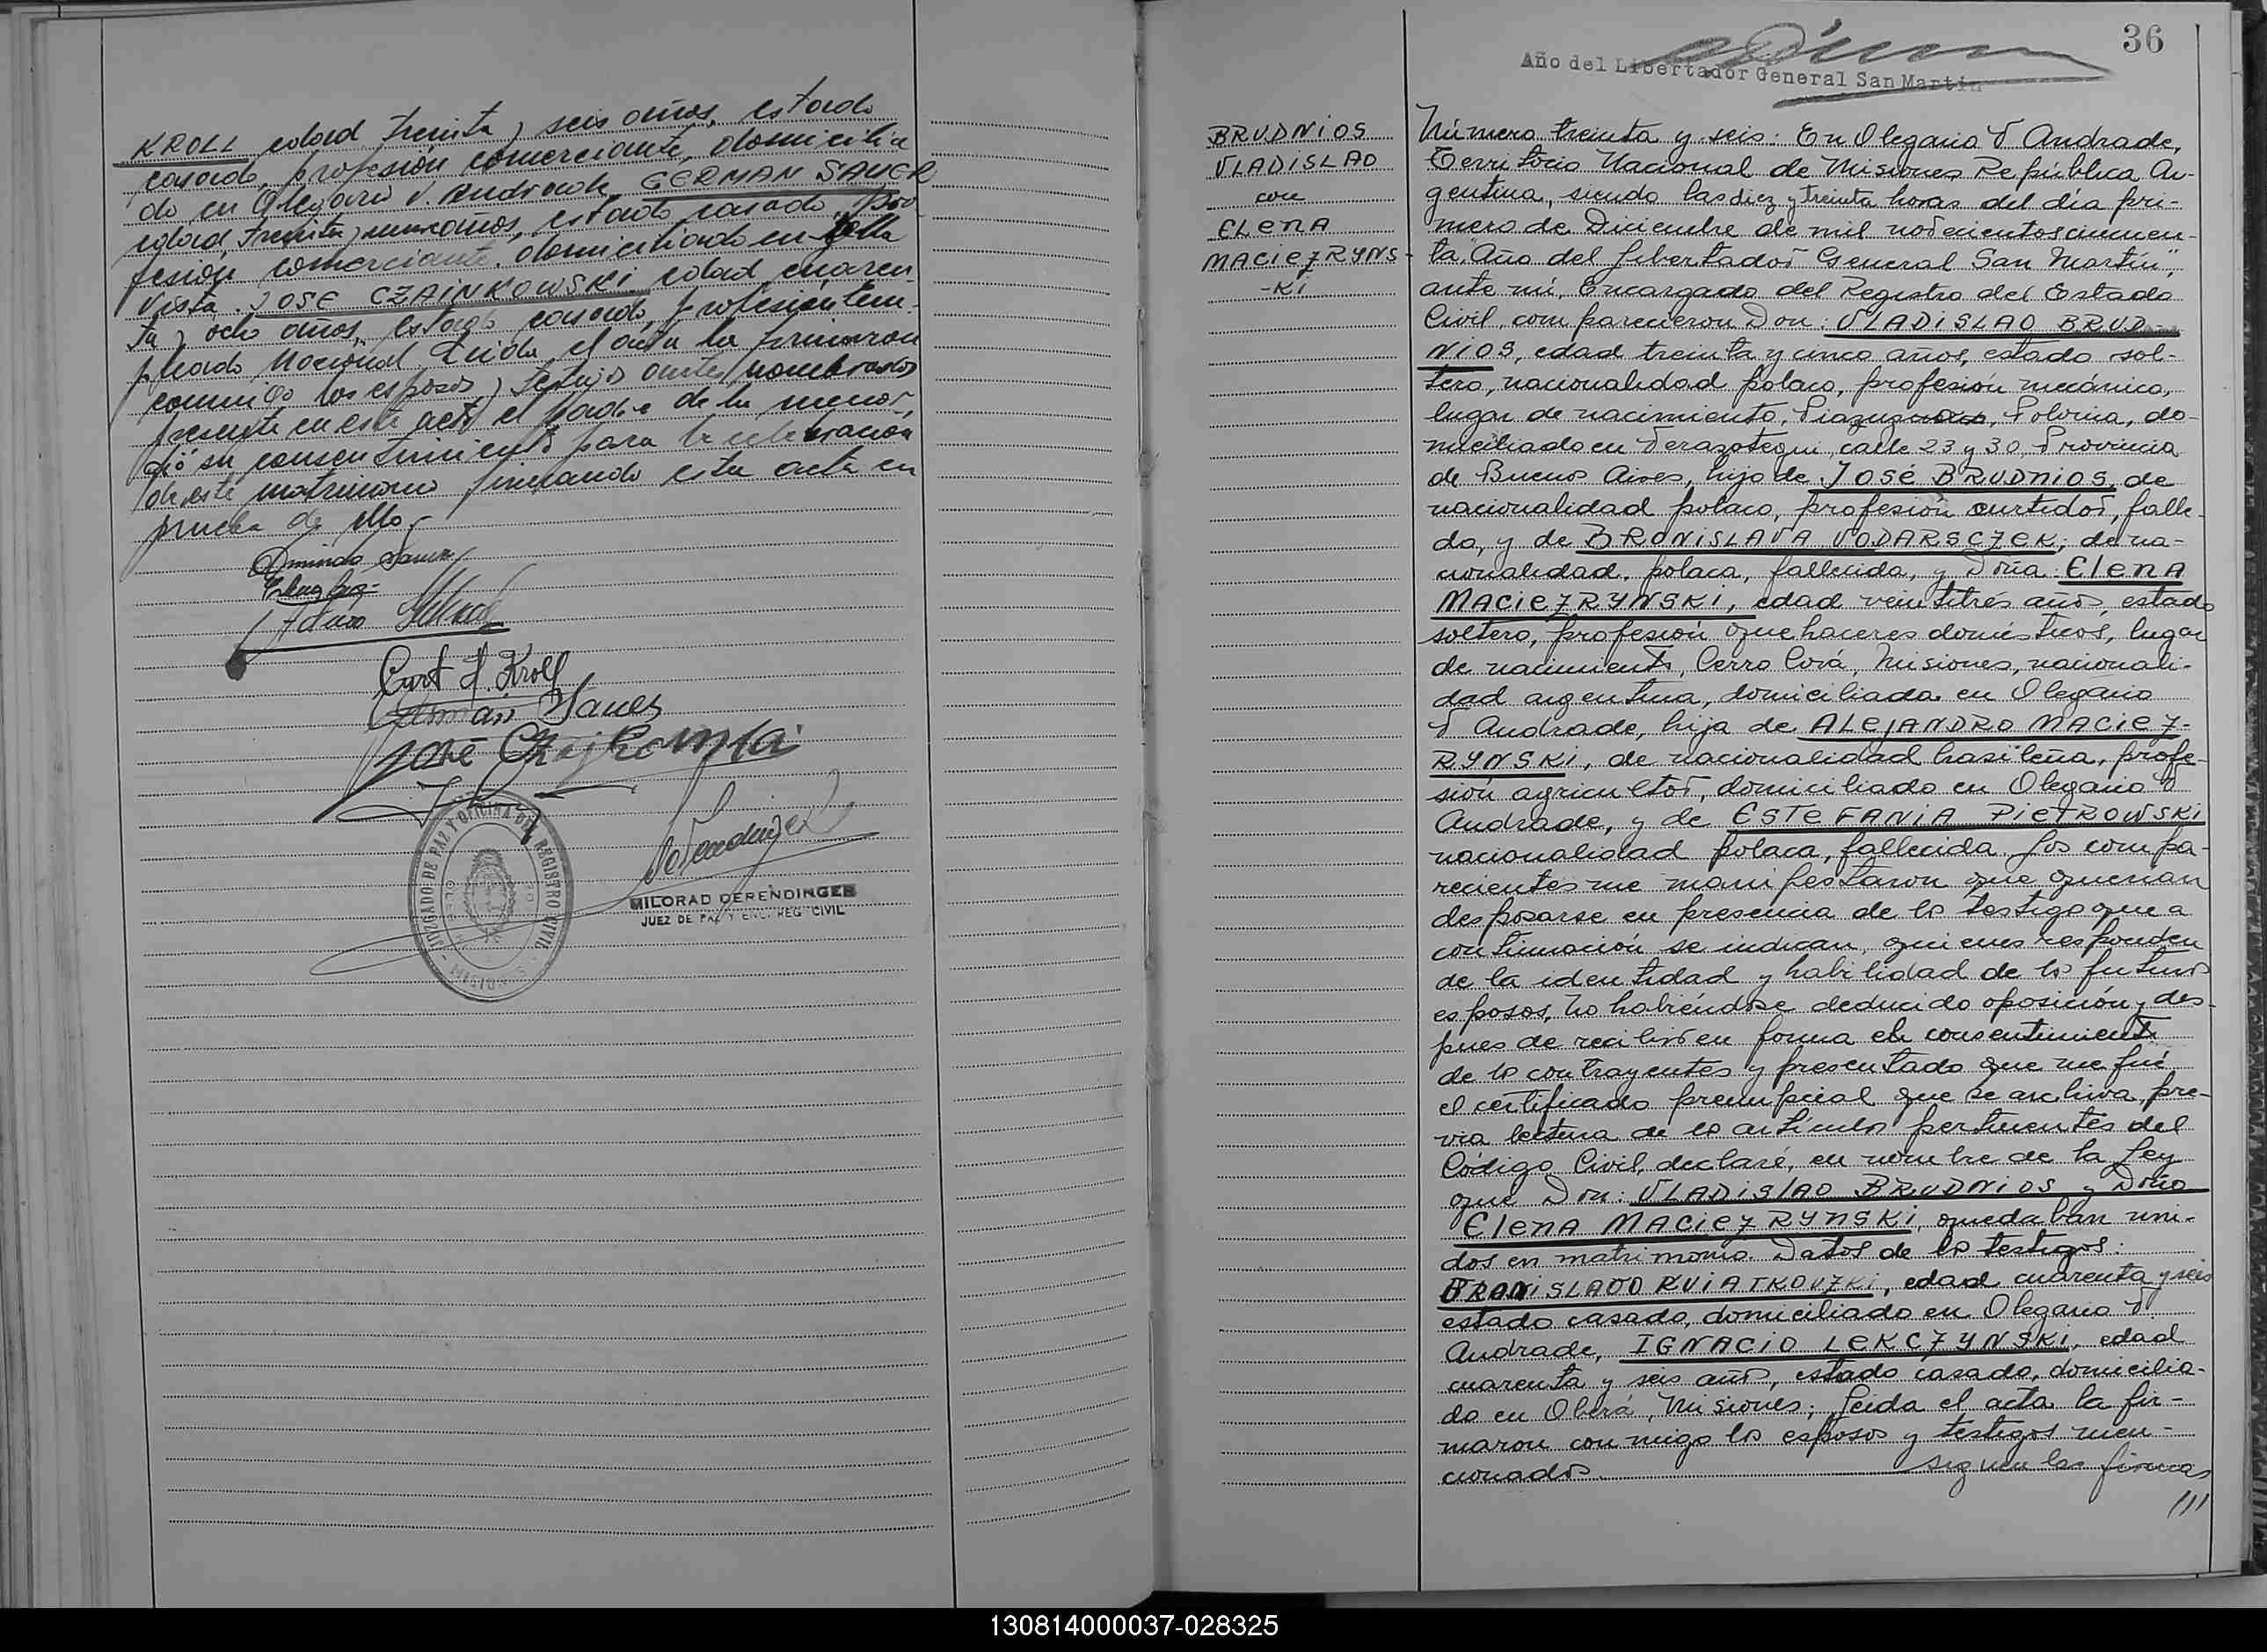 KROLL edad treinta y seis años, estado
casado, profesión comerciante, domicilia
do en Olegario V. Andrade, GERMAN SAUER
edad treinta y años, estado casado, pro-
fesión comerciante, domiciliado en Bella
Vista. JOSE CZAINKOWSKI edad cuaren
ta y ocho años, estado casado, profesión em-
pleado Nacional. Leida el acta la firmaron
conmigo los esposos y testigos antes nombrados
presente en este acto el padre de la menor,
dió su consentimiento para la celebración
de este matrimonio firmando esta acta en
prueba de ello.-
Curt H. Kroll
German Sauer
José
JUZGADO DE PAZ Y OFICINA DEL REGISTRO CIVIL
MISIONES
MILORAD DERENDINGER
JUEZ DE PAZ Y ENC. REG. CIVIL
36
Año del Libertador General San Martín
BRUDNIOS
VLADISLAO
con
ELENA
MACIEZRYNS-
-KI
Número treinta y seis: En Olegario V Andrade,
Territorio Nacional de Misiones República Ar-
gentina, siendo las diez y treinta horas del día pri-
mero de Diciembre de mil novecientos cincuen-
ta "Año del Libertador General San Martín",
ante mí, Encargado del Registro del Estado
Civil, comparecieron Don: VLADISLAO BRUD-
NIOS, edad treinta y cinco años, estado sol-
tero, nacionalidad polaco, profesión mecánico,
lugar de nacimiento, Polonia, do-
miciliado en Verazategui, calle 23 y 30, Provincia
de Buenos Aires, hijo de JOSÉ BRUDNIOS, de
nacionalidad polaco, profesión curtidor, falle-
do, y de BRONISLAVA VODARSCZEK, de na-
cionalidad, polaca, fallecida, y Doña: ELENA
MACIEZRYNSKI, edad veintitrés años, estado
soltero, profesión quehaceres domésticos, lugar
de nacimiento, Cerro Corá, Misiones, nacionali-
dad argentina, domiciliada en Olegario
V Andrade, hija de ALEJANDRO MACIEZ-
RYNSKI, de nacionalidad brasileña, profe-
sión agricultor, domiciliado en Olegario V
Andrade, y de ESTEFANIA PIETROWSKI
nacionalidad polaca, fallecida. Los compa-
recientes me manifestaron que querian
desposarse en presencia de los testigo que a
continuación se indican, quienes responden
de la identidad y habilidad de los futuros
esposos, no habiéndose deducido oposición y des-
pues de recibir en forma el consentimiento
de los contrayentes y presentado que me fué
el certificado prenupcial que se archiva, pre-
via lectura de los artículos pertinentes del
Código Civil, declaré, en nombre de la Ley
que Don: VLADISLAO BRUDNIOS y Doña
ELENA MACIEZRYNSKI, quedaban uni-
dos en matrimonio. Datos de los testigos:
BRONISLAVO KVIATKOVZKI, edad cuarenta y seis
estado casado, domiciliado en Olegario V
Andrade, IGNACIO LEKCZYNSKI, edad
cuarenta y seis años, estado casado, domicilia-
do en Oberá, Misiones; Leida el acta la fir-
maron conmigo los esposos y testigos men-
cionados. siguen las firmas
///
130814000037-028325